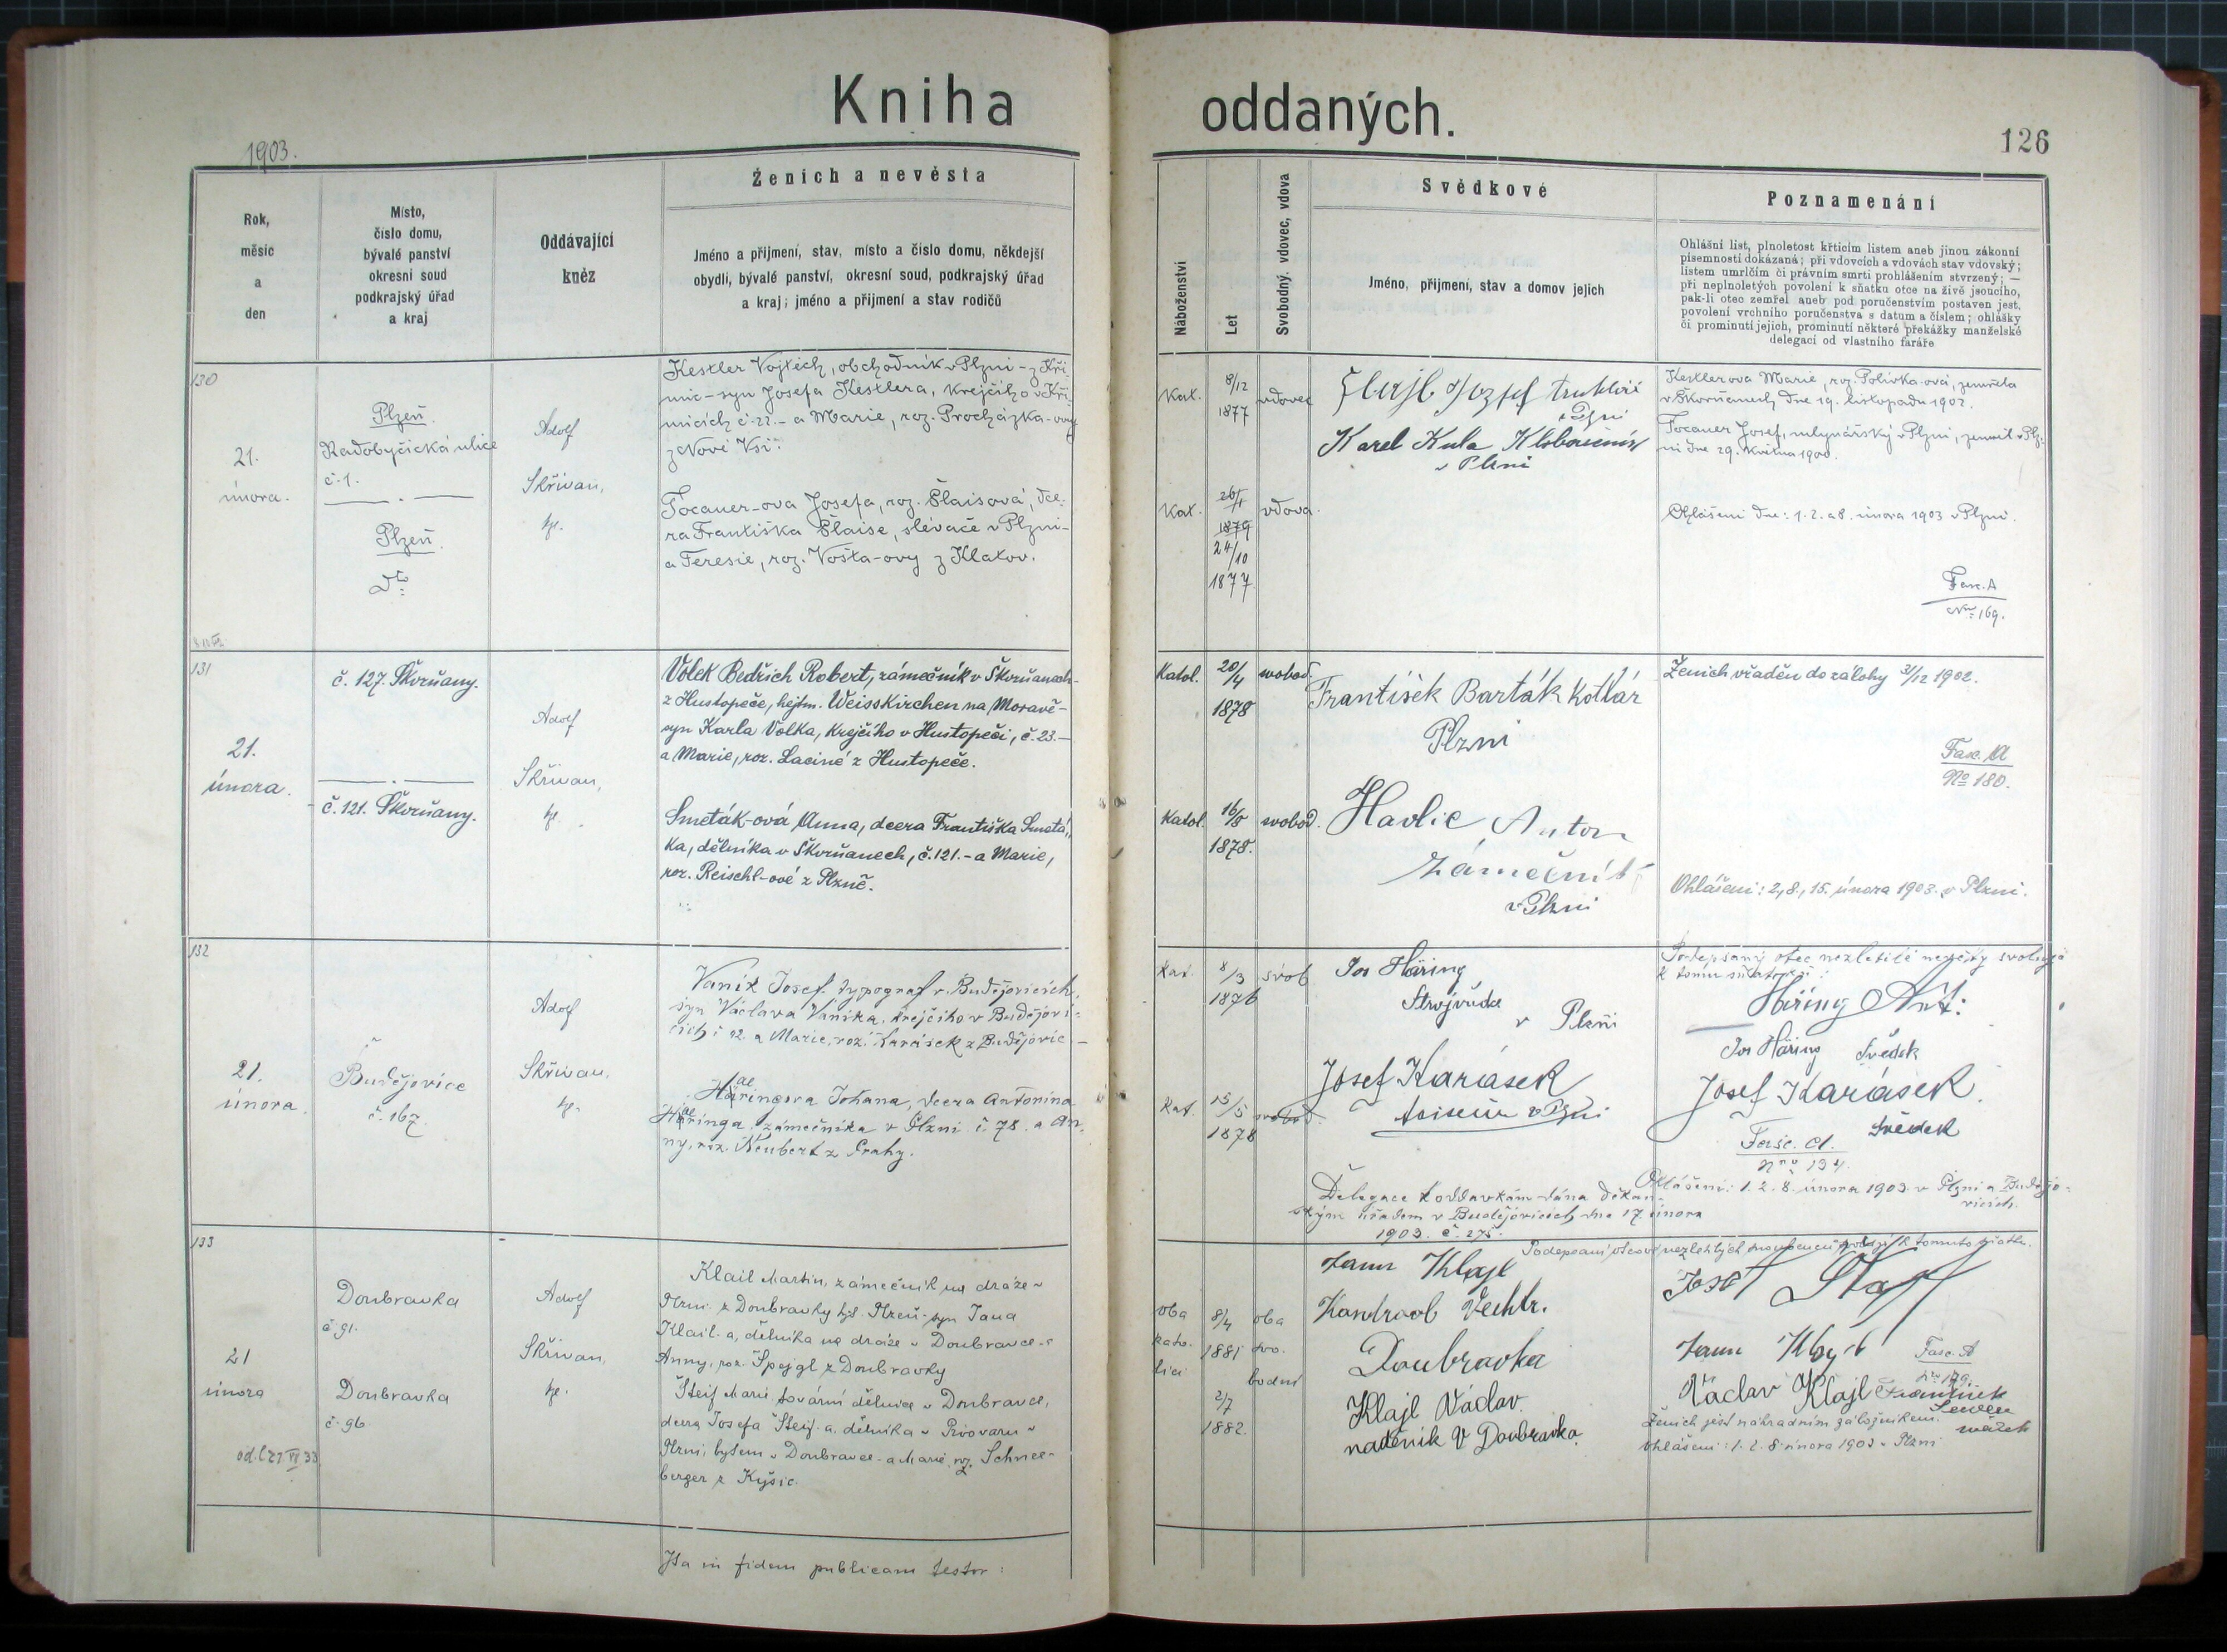 Kniha oddaných.
126
1903.
Rok,
měsíc
a
den
Místo,
číslo domu,
bývalé panství
okresní soud
podkrajský úřad
a kraj
Oddávající
kněz
Ženich a nevěsta
Jméno a přijmení, stav, místo a číslo domu, někdejší
obydlí, bývalé panství, okresní soud, podkrajský úřad
a kraj; jméno a přijmení a stav rodičů
Náboženství
Let
Svobodný, vdovec, vdova
Svědkové
Jméno, přijmení, stav a domov jejich
Poznamenání
Ohlášní list, plnoletost křticím listem aneb jinou zákonní
písemností dokázaná; při vdovcích a vdovách stav vdovský;
listem umrlčím či právním smrti prohlášením stvrzený; —
při neplnoletých povolení k sňatku otce na živě jsoucího,
pak-li otec zemřel aneb pod poručenstvím postaven jest,
povolení vrchního poručenstva s datum a číslem; ohlášky
či prominutí jejich, prominutí některé překážky manželské
delegací od vlastního faráře
130
21.
února.
Plzeň
Radobyčická ulice
č. 1.
Plzeň
Adolf
Skřivan,
Kestler Vojtěch, obchodník v Plzni - z Kři-
mic - syn Josefa Kestlera, krejčího v Kři-
micích č. 22. - a Marie, roz. Procházka-ovy
z Nové Vsi.
Tocauer-ova Josefa, roz. Šlaisová, dce-
ra Františka Šlaise, slévače v Plzni -
a Teresie, roz. Vošta-ovy z Klatov.
Kat.
8/12
1877
vdovec
Kat.
26/1
1879
24/10
1877
vdova.
Karel Kula
v Plzni
Kestlerova Marie, roz. Polívka-ová, zemřela
v Škvrňanech dne 19. listopadu 1902.
Tocauer Josef, mlynářský v Plzni, zemřel v Plz-
ni dne 29. května 1900.
Ohlášeni dne: 1. 2. a 8. února 1903 v Plzni.
Fasc. A
Nro 169.
131
21.
února.
č. 127. Škvrňany.
č. 121. Škvrňany.
Adolf
Skřivan,
Volek Bedřich Robert, zámečník v Škvrňanech -
z Hustopeče, hejtm. Weisskirchen na Moravě -
syn Karla Volka, krejčího v Hustopeči, č. 23. -
a Marie, roz. Laciné z Hustopeče.
Smeták-ová Anna, dcera Františka Smetá-
ka, dělníka v Škvrňanech, č. 121. - a Marie,
roz. Reischl-ové z Plzně.
Katol.
20/4
1878
svobod.
Katol.
16/8
1878.
svobod.
František Barták kotlář
Plzni
Havlic Anton
zámečník
v Plzni
Ženich vřaděn do zálohy 31/12 1902.
Fasc. A
No 180.
Ohlášeni: 2., 8., 15. února 1903. v Plzni.
132
21.
února.
Budějovice
č. 167
Adolf
Skřivan,
Vaník Josef, typograf v Budějovicích,
syn Václava Vaníka, krejčího v Budějovi-
cích č. 12. a Marie, roz. Karásek z Budějovic -
Häringova Johana, dcera Antonína
Häringa, zámečníka v Plzni č. 78. a An-
ny, roz. Neubert z Prahy.
Kat.
8/3
1876
svob
Kat.
15/5
1878
svobod.
Jos Häring
Strojvůdce
v Plzni
Josef Karásek
v Plzni
Delegace k oddavkám dána děkan-
ským úřadem v Budějovicích dne 17. února
1903. č. 275.
Podepsaný otec nezletilé nevěsty svoluje
k tomu sňatku:
Häring Ant:
Jos Häring svědek
Josef Karásek
svědek
Fasc. A.
Nro 134.
Ohlášeni: 1. 2. 8. února 1903 v Plzni a Budějo-
vicích.
133
21
února
Doubravka
č. 91.
Doubravka
č. 96
Adolf
Skřivan,
Klail Martin, zámečník na dráze v
Plzni z Doubravky hjt. Plzeň - syn Jana
Klail-a, dělníka na dráze v Doubravce - a
Anny, roz. Špejgl z Doubravky
Šteif Marie tovární dělnice v Doubravce,
dcera Josefa Šteif-a, dělníka v Pivovaru v
Plzni, bytem v Doubravce - a Marie roz. Schnee-
berger z Kyšic.
oba
kato-
líci
8/4
1881
2/7
1882.
oba
svo-
bodni
Doubravka
Klajl Václav
nadeník v Doubravka
Podepsaní otcové nezletilých snoubenců svolují k tomuto sňatku.
Václav Klajl
Fasc. A
Ženich jest náhradním záložníkem.
Ohlášeni: 1. 2. 8. února 1903 v Plzni
Ita in fidem publicam testor: